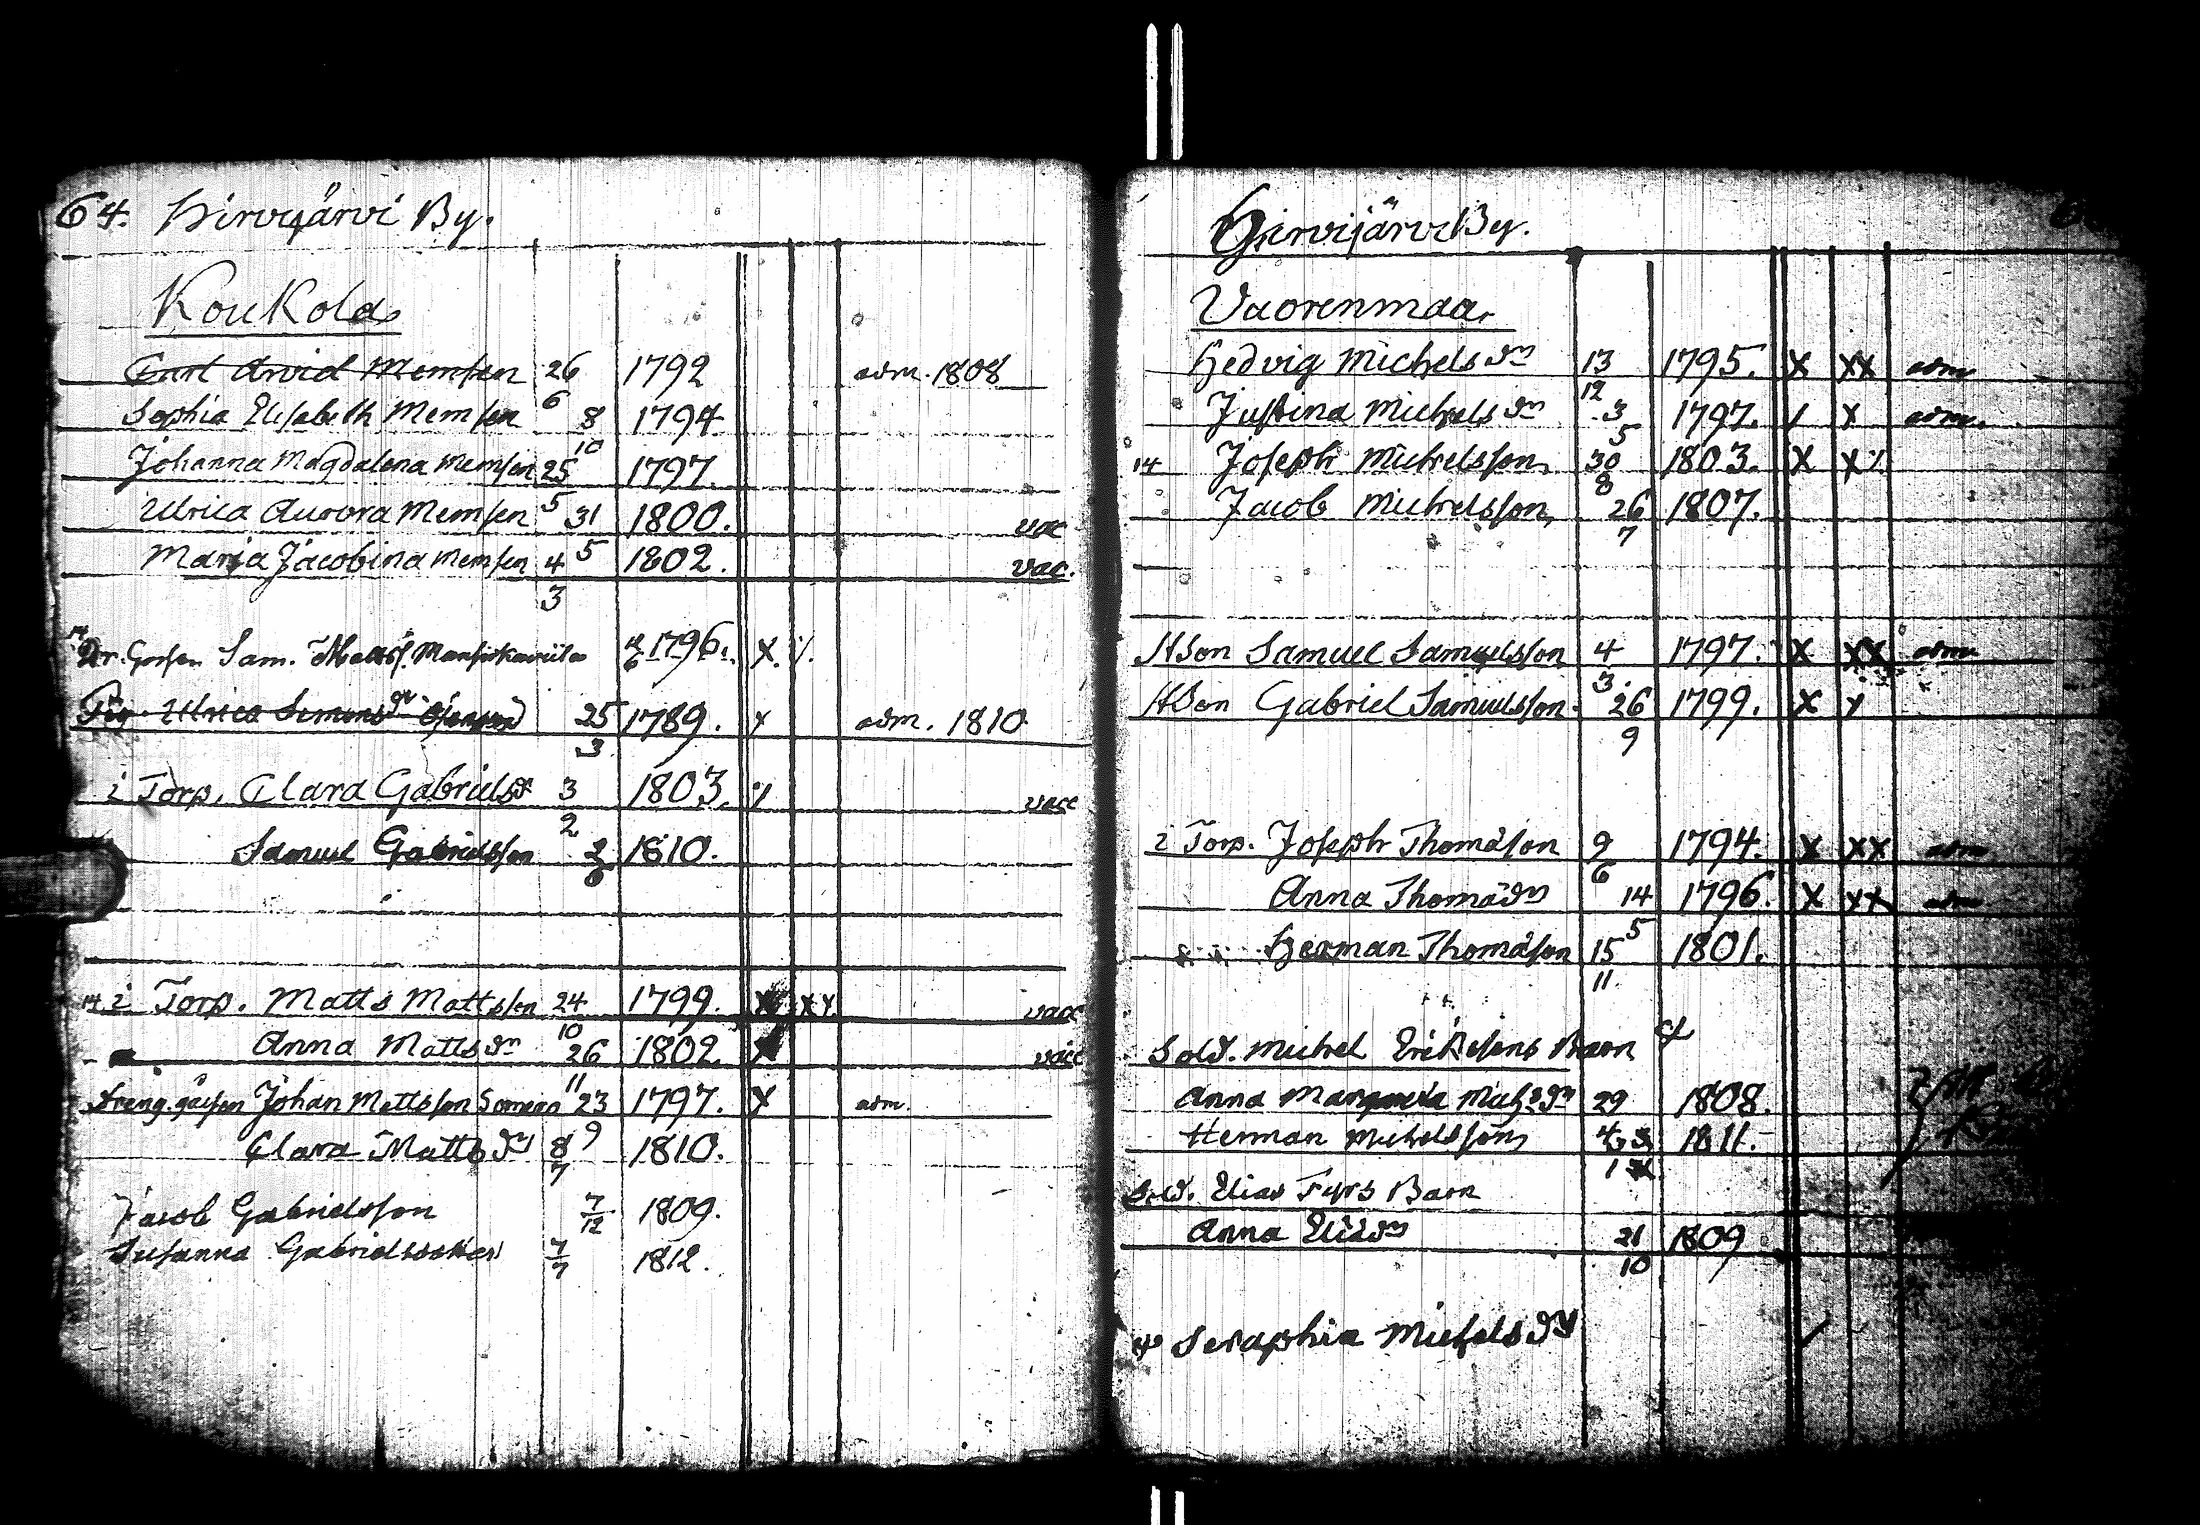 64. Hirvijärvi By.
Koukola
Carl Arvid Memsen 26 6 1792 adm. 1808
Sophia Elisabeth Memsen 8 10 1794
Johanna Magdalena Memsen 25 5 1797
Ulrica Aurora Memsen 31 5 1800. vac
Maria Jacobina Memsen 4 3 1802. vac.
Dr. Gossen Sam. Matts. 1796. X
Ulrica Simonsdr 25 3 1789. x adm. 1810
i Torp. Clara Gabrielsdr 3 2 1803. vacc
Samuel Gabrielsson 2 1810.
14 i Torp. Matts Mattsson 24 10 1799. X XX vacc
Anna Mattsdr 26 11 1802. vacc
Dreng gossen Johan Mattsson 23 9 1797. X adm.
Clara Mattsdr 8 7 1810.
Jacob Gabrielsson 7/12 1809.
Susanna Gabrielsdotter 7/7 1812.
Hirvijärvi By.
Vaorenmaa.
Hedvig Michelsdr 13 12 1795. X XX adm
Justina Michelsdr 3 5 1797. / x adm.
14 Joseph Michelsson 30 8 1803. X X
Jacob Michelsson, 26 7 1807.
HSon Samuel Samuelsson 4 3. 1797. X XX adm
HSon Gabriel Samuelsson. 26 9 1799. X
i Torp. Joseph Thomasson 9 6 1794. X XX adm
Anna Thomasdr 14 5 1796. X XX adm
Herman Thomasson 15 11. 1801.
Sold. Michel Erikssons Barn
Anna Margareta Mich:dr 29 4 1808.
Herman Michelsson 1811.
Sold. Elias Fyrs Barn
Anna Eliædr 21 10 1809
Seraphia Michelsdr